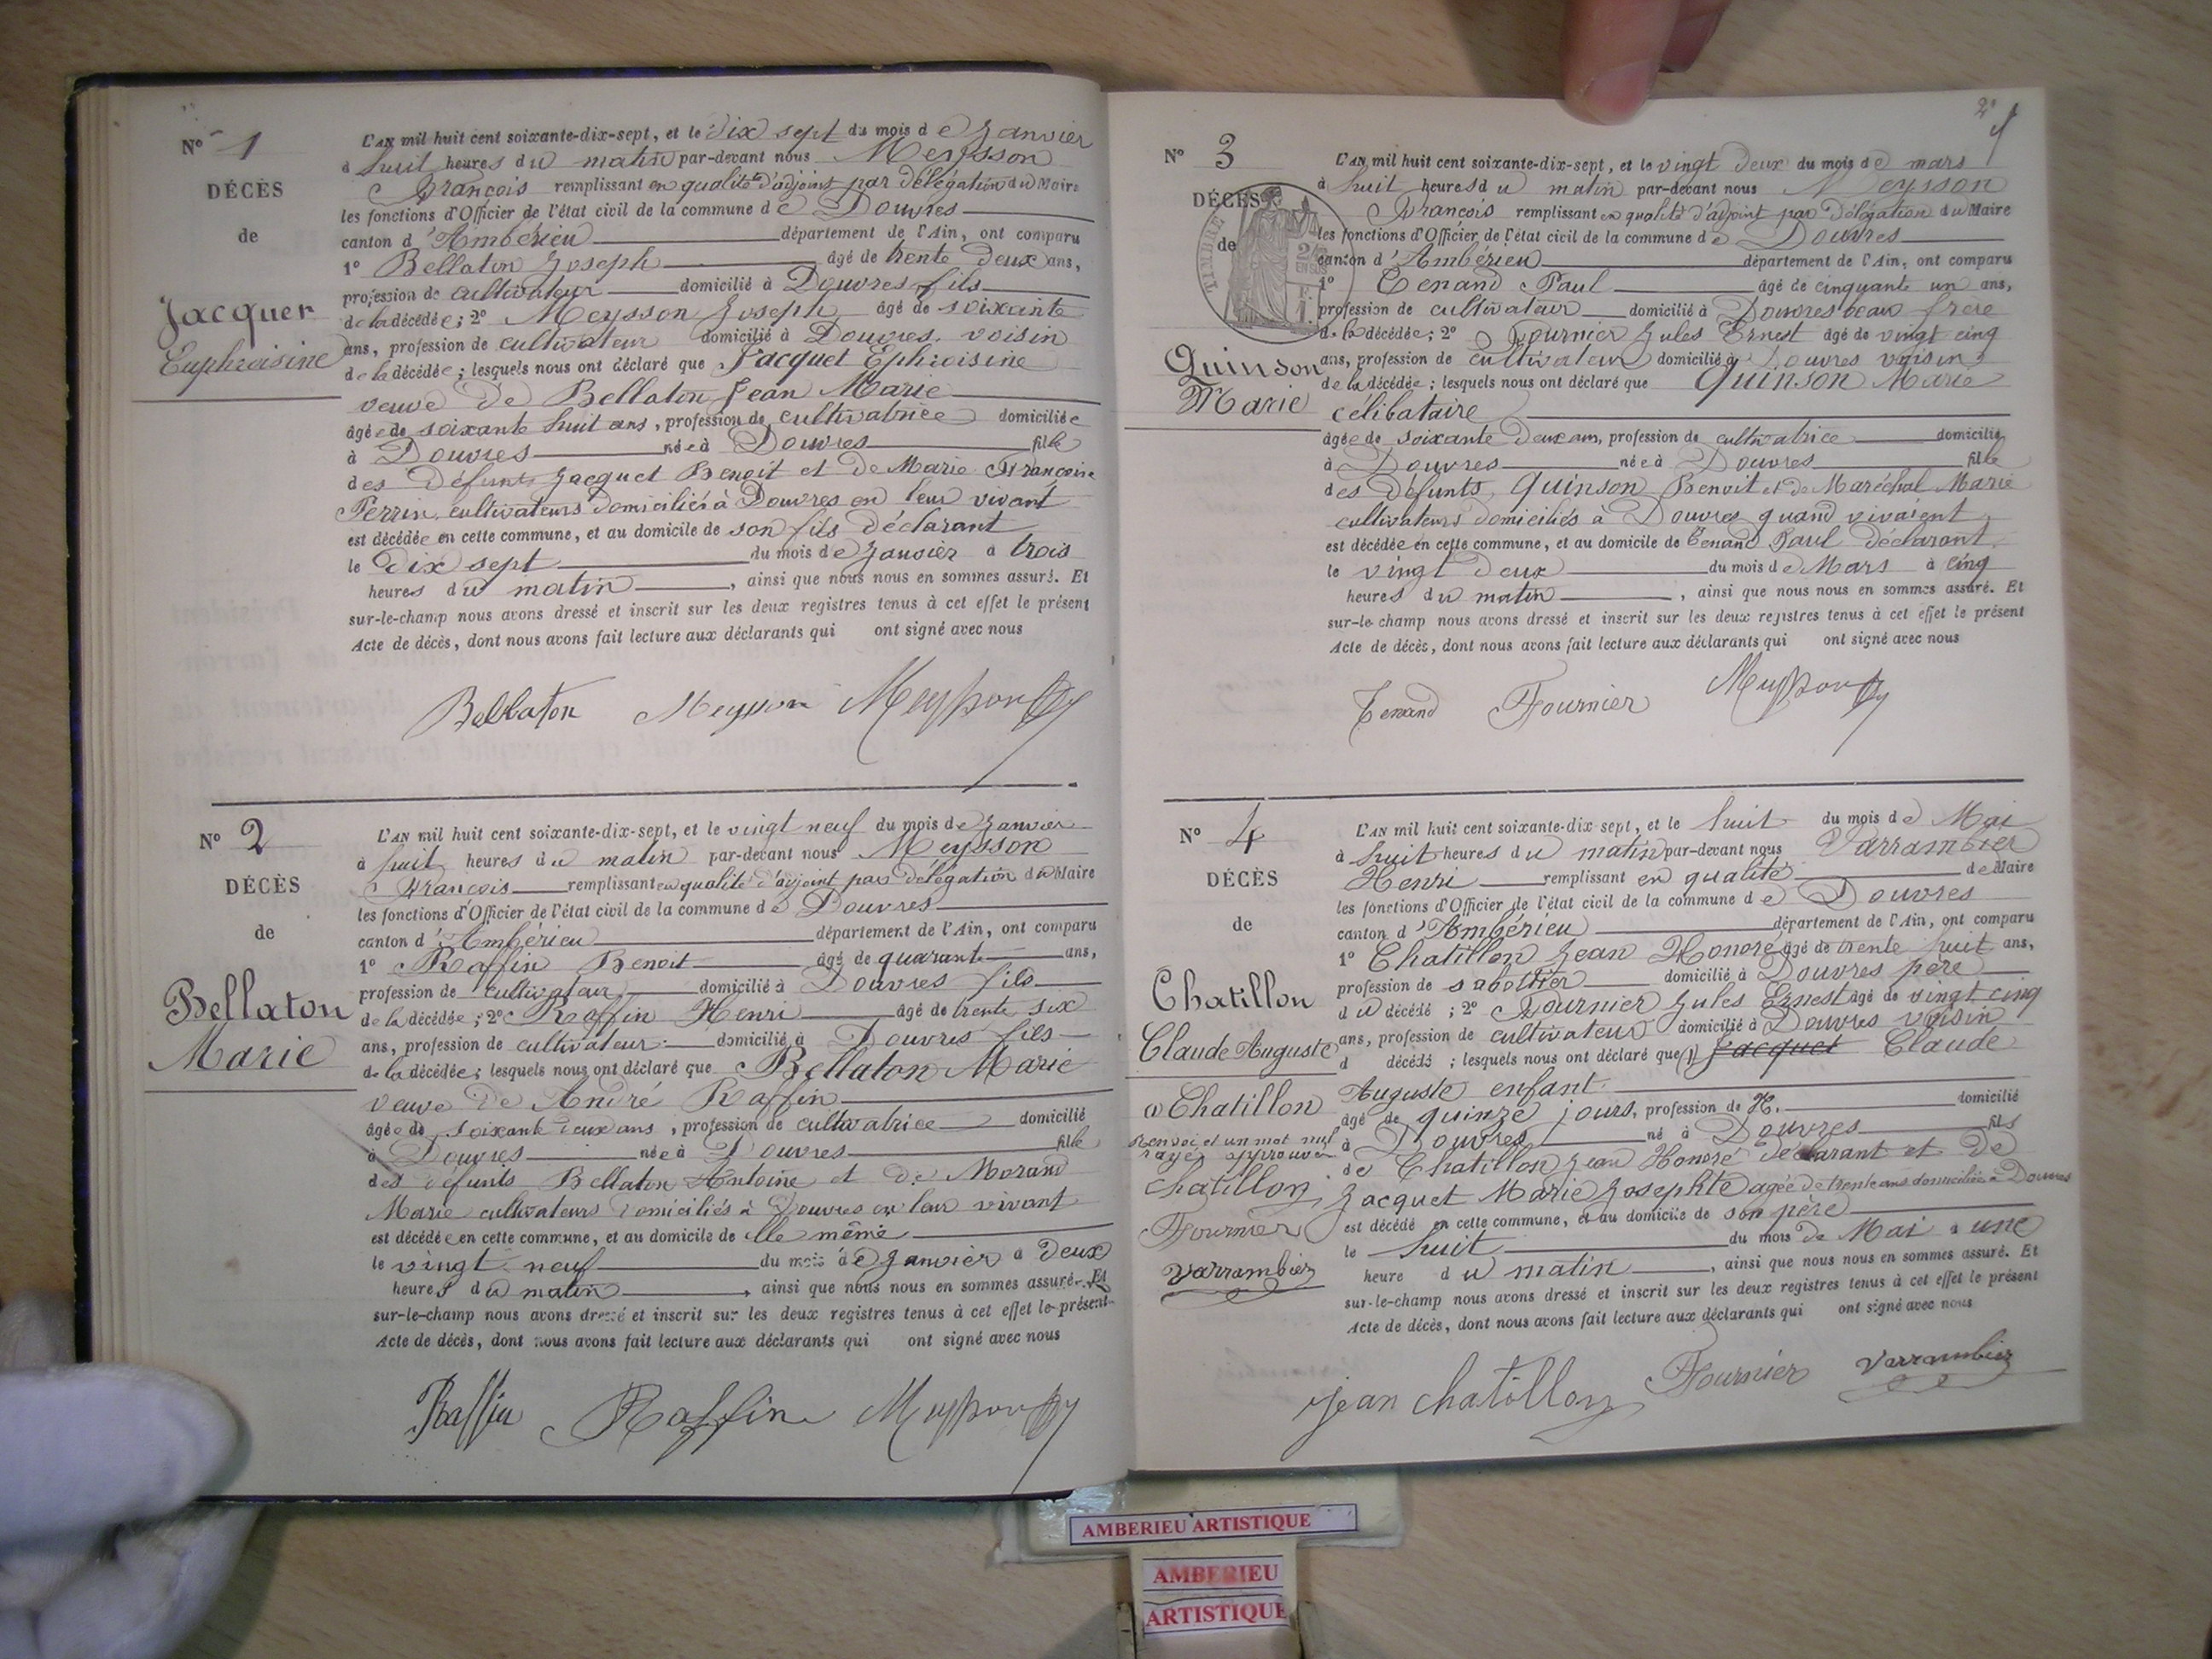 N° 1
DÉCÈS
de
Jacquet
Euphroisine
L'AN mil huit cent soixante-dix-sept, et le dix sept du mois de Janvier
à huit heures du matin par-devant nous Meysson
François remplissant en qualité d'adjoint par délégation du Maire
les fonctions d'Officier de l'état civil de la commune de Douvres
canton d'Ambérieu département de l'Ain, ont comparu
1° Bellaton Joseph âgé de trente deux ans,
profession de cultivateur domicilié à Douvres fils
de la décédée; 2° Meysson Joseph âgé de soixante
ans, profession de cultivateur domicilié à Douvres, voisin
de la décédée; lesquels nous ont déclaré que Jacquet Ephroisine
veuve de Bellaton Jean Marie
âgée de soixante huit ans, profession de cultivatrice domiciliée
à Douvres née à Douvres fille
des défunts Jacquet Benoit et de Marie Françoise
Perrin, cultivateurs domiciliés à Douvres en leur vivant
est décédée en cette commune, et au domicile de son fils déclarant
le dix sept du mois de Janvier à trois
heures du matin, ainsi que nous nous en sommes assuré. Et
sur-le-champ nous avons dressé et inscrit sur les deux registres tenus à cet effet le présent
Acte de décès, dont nous avons fait lecture aux déclarants qui ont signé avec nous
Bellaton Meysson Meysson
N° 2
DÉCÈS
de
Bellaton
Marie
L'AN mil huit cent soixante-dix-sept, et le vingt neuf du mois de Janvier
à huit heures du matin par-devant nous Meysson
François remplissant en qualité d'adjoint par délégation du Maire
les fonctions d'Officier de l'état civil de la commune de Douvres
canton d'Ambérieu département de l'Ain, ont comparu
1° Raffin Benoit âgé de quarante ans,
profession de cultivateur domicilié à Douvres fils
de la décédée; 2° Raffin Henri âgé de trente six
ans, profession de cultivateur domicilié à Douvres fils
de la décédée; lesquels nous ont déclaré que Bellaton Marie
veuve de André Raffin
âgée de soixante deux ans, profession de cultivatrice domicilié
à Douvres née à Douvres fille
des défunts Bellaton Antoine et de Morand
Marie cultivateurs domiciliés à Douvres en leur vivant
est décédée en cette commune, et au domicile de elle même
le vingt neuf du mois de Janvier à deux
heures du matin, ainsi que nous nous en sommes assuré. Et
sur-le-champ nous avons dressé et inscrit sur les deux registres tenus à cet effet le présent
Acte de décès, dont nous avons fait lecture aux déclarants qui ont signé avec nous
Raffin Raffin Meysson
2
N° 3
DÉCÈS
de
TIMBRE
Quinson
Marie
L'AN mil huit cent soixante-dix-sept, et le vingt deux du mois de mars
à huit heures du matin par-devant nous Meysson
François remplissant en qualité d'adjoint par délégation du Maire
les fonctions d'Officier de l'état civil de la commune de Douvres
canton d'Ambérieu département de l'Ain, ont comparu
1° Tenand Paul âgé de cinquante un ans,
profession de cultivateur domicilié à Douvres beau frère
de la décédée; 2° Fournier Jules Ernest âgé de vingt cinq
ans, profession de cultivateur domicilié à Douvres voisin
de la décédée; lesquels nous ont déclaré que Quinson Marie
célibataire
âgée de soixante deux ans, profession de cultivatrice domicilié
à Douvres née à Douvres fille
des défunts Quinson Benoit et de Maréchal Marie
cultivateurs domiciliés à Douvres quand vivaient,
est décédée en cette commune, et au domicile de Tenand Paul déclarant
le vingt deux du mois de Mars à cinq
heures du matin, ainsi que nous nous en sommes assuré. Et
sur-le-champ nous avons dressé et inscrit sur les deux registres tenus à cet effet le présent
Acte de décès, dont nous avons fait lecture aux déclarants qui ont signé avec nous
Tenand Fournier Meysson
N° 4
DÉCÈS
de
Chatillon
Claude Auguste
L'AN mil huit cent soixante-dix-sept, et le huit du mois de Mai
à huit heures du matin par-devant nous Varrambier
Henri remplissant en qualité de Maire
les fonctions d'Officier de l'état civil de la commune de Douvres
canton d'Ambérieu département de l'Ain, ont comparu
1° Chatillon Jean Honoré âgé de trente huit ans,
profession de sabottier domicilié à Douvres père
du décédé; 2° Fournier Jules Ernest âgé de vingt cinq
ans, profession de cultivateur domicilié à Douvres voisin
d décédé; lesquels nous ont déclaré que Jacquet Claude
Auguste enfant
âgé de quinze jours, profession de X. domicilié
à Douvres né à Douvres fils
de Chatillon Jean Honoré déclarant et de
Jacquet Marie Josephte agée de trente ans domiciliée à Douvres
est décédé en cette commune, et au domicile de son père
le huit du mois de Mai à une
heure du matin, ainsi que nous nous en sommes assuré. Et
sur-le-champ nous avons dressé et inscrit sur les deux registres tenus à cet effet le présent
Acte de décès, dont nous avons fait lecture aux déclarants qui ont signé avec nous
Chatillon
Renvoi et un mot nul
rayé approuvé
chatillon
Fournier
Varrambier
jean chatillon Fournier Varrambier
AMBERIEU ARTISTIQUE
AMBERIEU
ARTISTIQUE